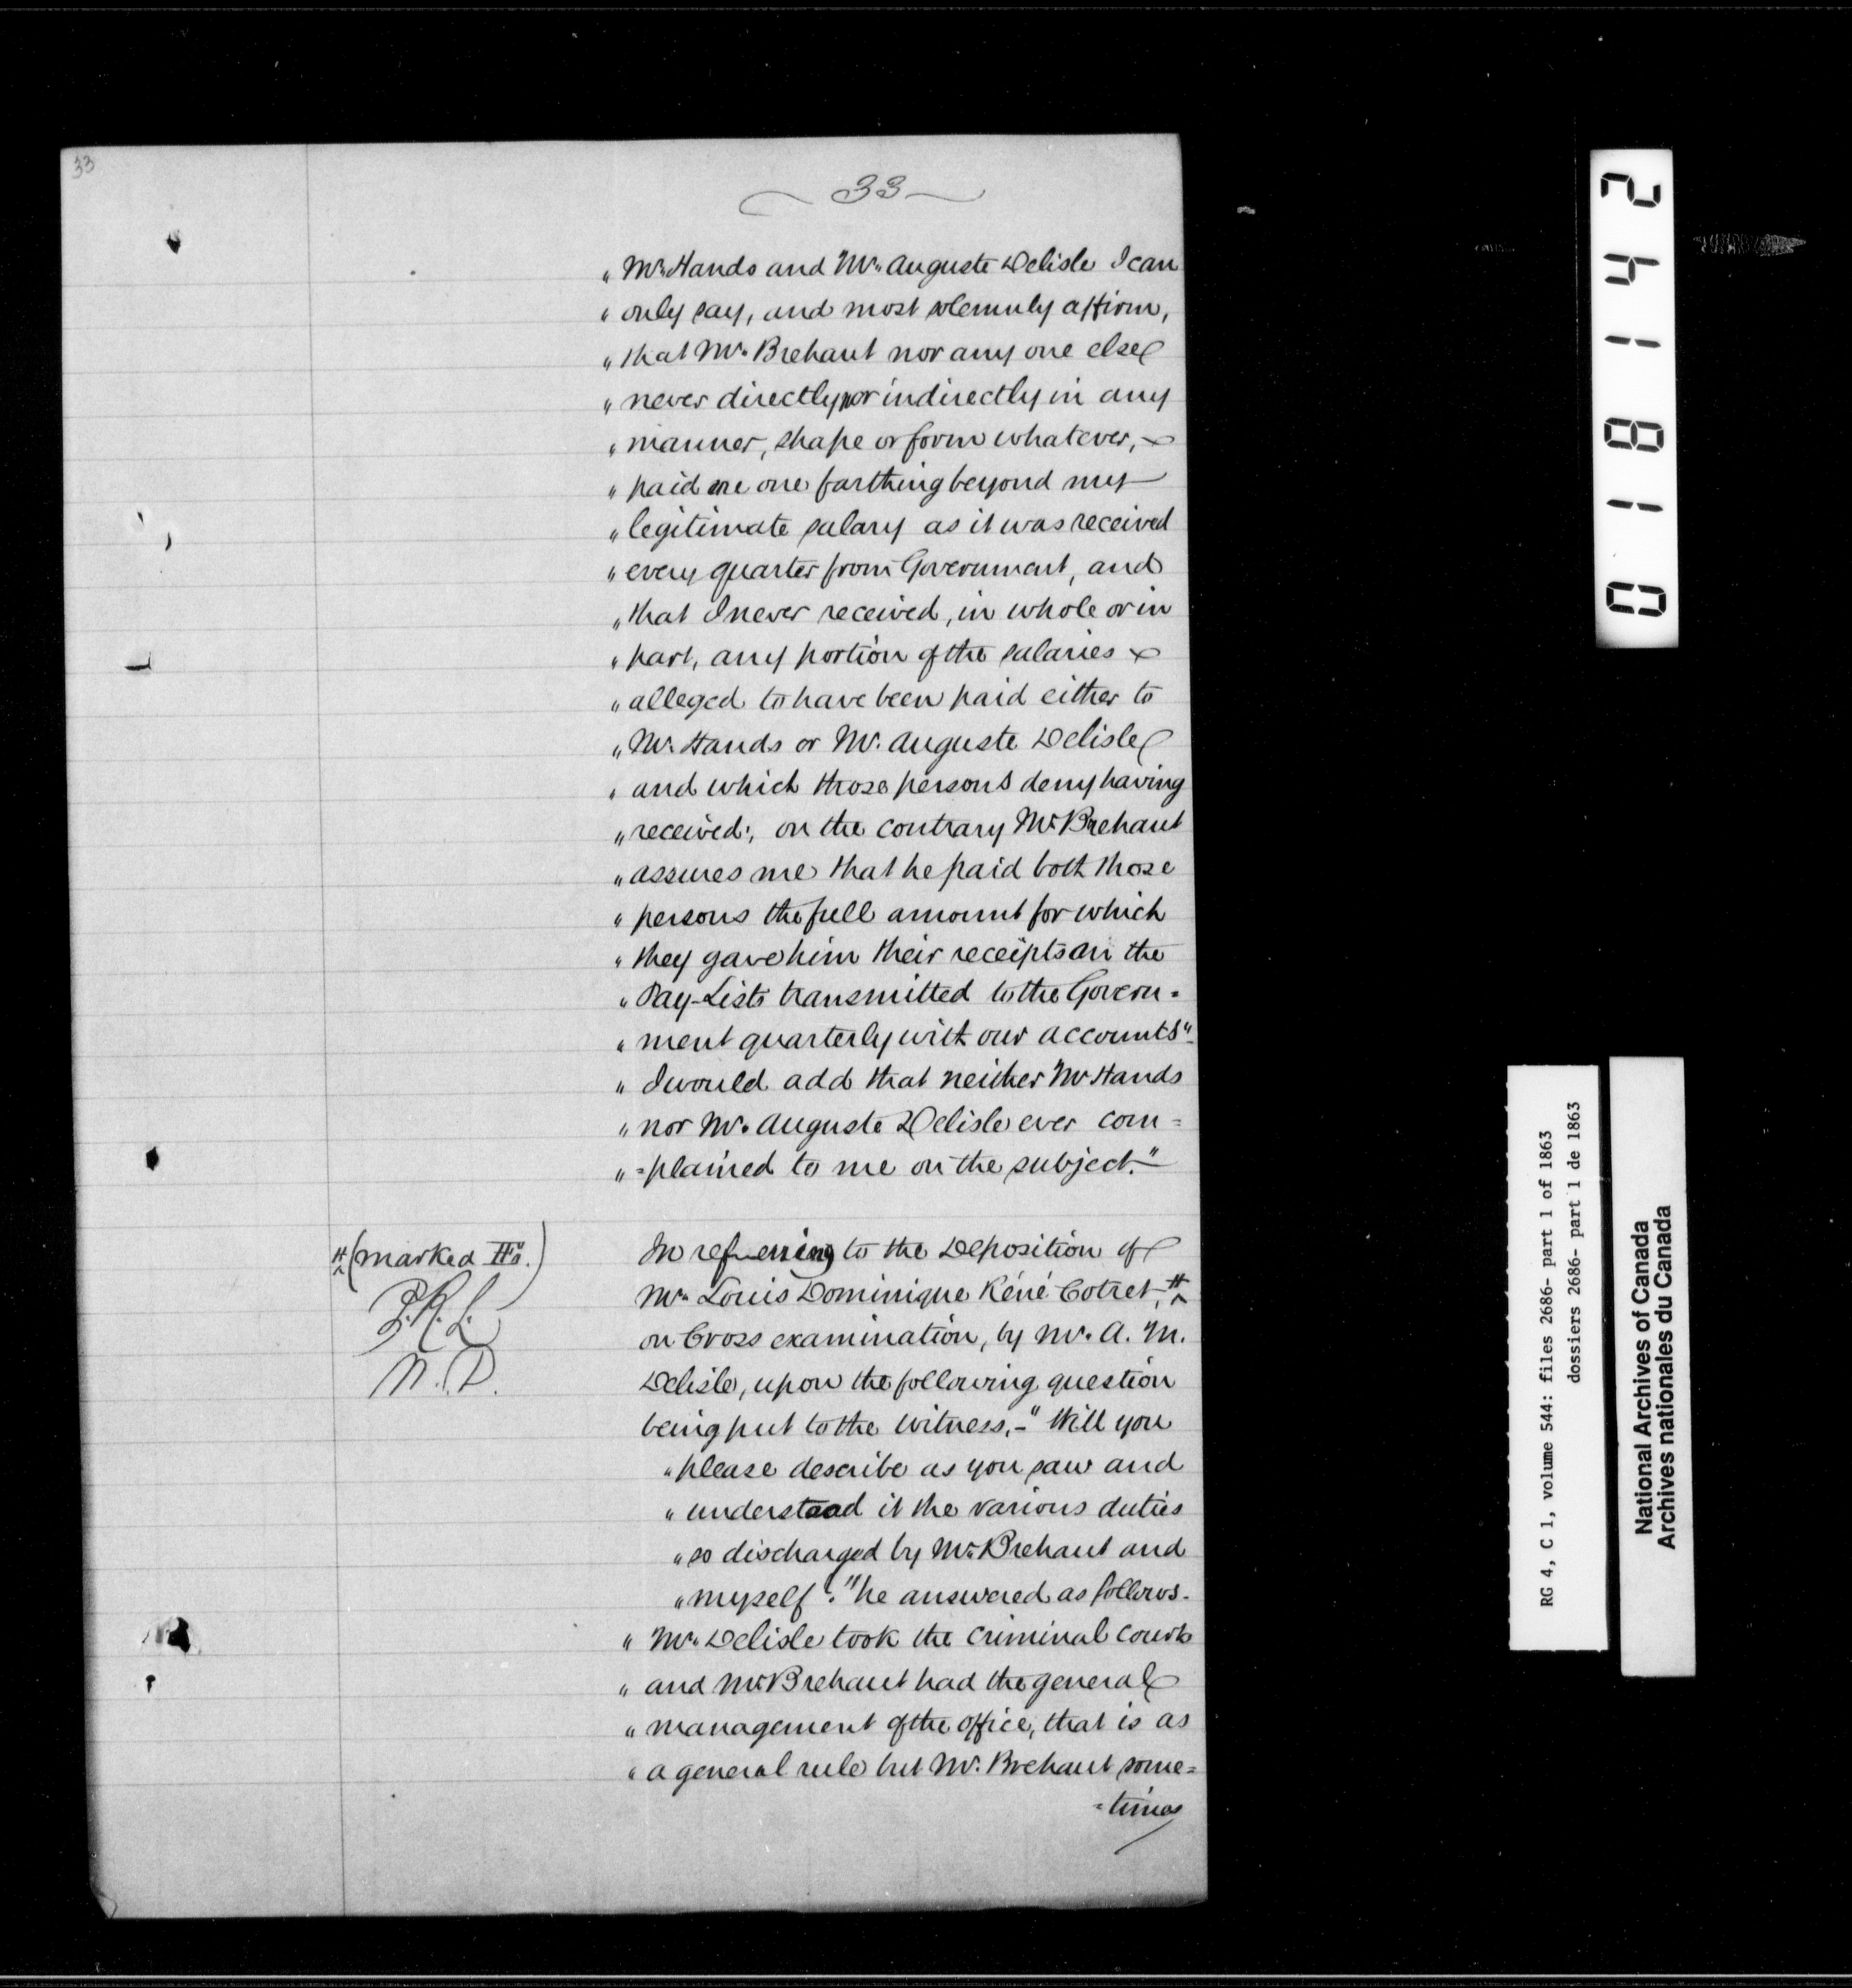 33
33
„ Mr. Hands and Mr. Auguste Delisle I can
„ only say, and most solemnly affirm,
„ that Mr. Brehaut nor any one else
„ never directly nor indirectly in any
„ manner, shape or form whatever,
„ paid me one farthing beyond my
„ legitimate salary as it was received
„ every quarter from Government, and
„ that I never received, in whole or in
„ part, any portion of the salaries
„ alleged to have been paid either to
„ Mr. Hands or Mr. Auguste Delisle
„ and which those persons deny having
„ received; on the contrary Mr. Brehaut
„ assures me that he paid both those
„ persons the full amount for which
„ they gave him their receipts on the
„ Pay-Lists transmitted to the Govern=
„ ment quarterly with our accounts"
„ I would add that neither Mr Hands
„ nor Mr. Auguste Delisle ever com=
„ =plained to me on the subject."
# (marked
In referring to the Deposition of
Mr. Louis Dominique Réné Cotret, #
on Cross examination, by Mr. A. M.
Delisle, upon the following question
being put to the witness,- "Will you
„ please describe as you saw and
„ understood it the various duties
„ so discharged by Mr. Brehaut and
„ myself". he answered as follows.
„ Mr. Delisle took the criminal courts
„ and Mr. Brehaut had the general
„ management of the office, that is as
„ a general rule but Mr. Brehaut some=
=times
018142
RG 4, C 1, volume 544: files 2686- part 1 of 1863
dossiers 2686- part 1 de 1863
National Archives of Canada
Archives nationales du Canada